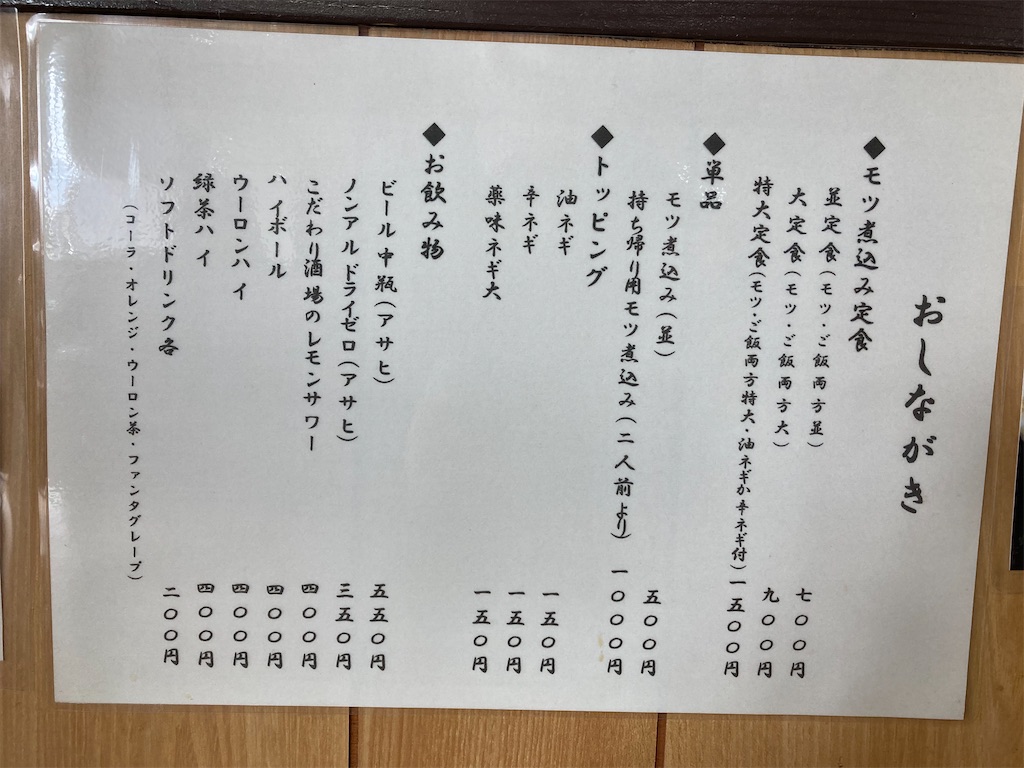 おしながき
◆モツ煮込み定食
並定食(モツ・ご飯両方並) 七〇〇円
大定食(モツ・ご飯両方大) 九〇〇円
特大定食(モツ・ご飯両方特大・油ネギか辛ネギ付) 一五〇〇円
◆単品
モツ煮込み(並) 五〇〇円
持ち帰り用モツ煮込み(二人前より) 一〇〇〇円
◆トッピング
油ネギ 一五〇円
辛ネギ 一五〇円
薬味ネギ大 一五〇円
◆お飲み物
ビール中瓶(アサヒ) 五五〇円
ノンアルドライゼロ(アサヒ) 三五〇円
こだわり酒場のレモンサワー 四〇〇円
ハイボール 四〇〇円
ウーロンハイ 四〇〇円
緑茶ハイ 四〇〇円
ソフトドリンク各 二〇〇円
(コーラ・オレンジ・ウーロン茶・ファンタグレープ)